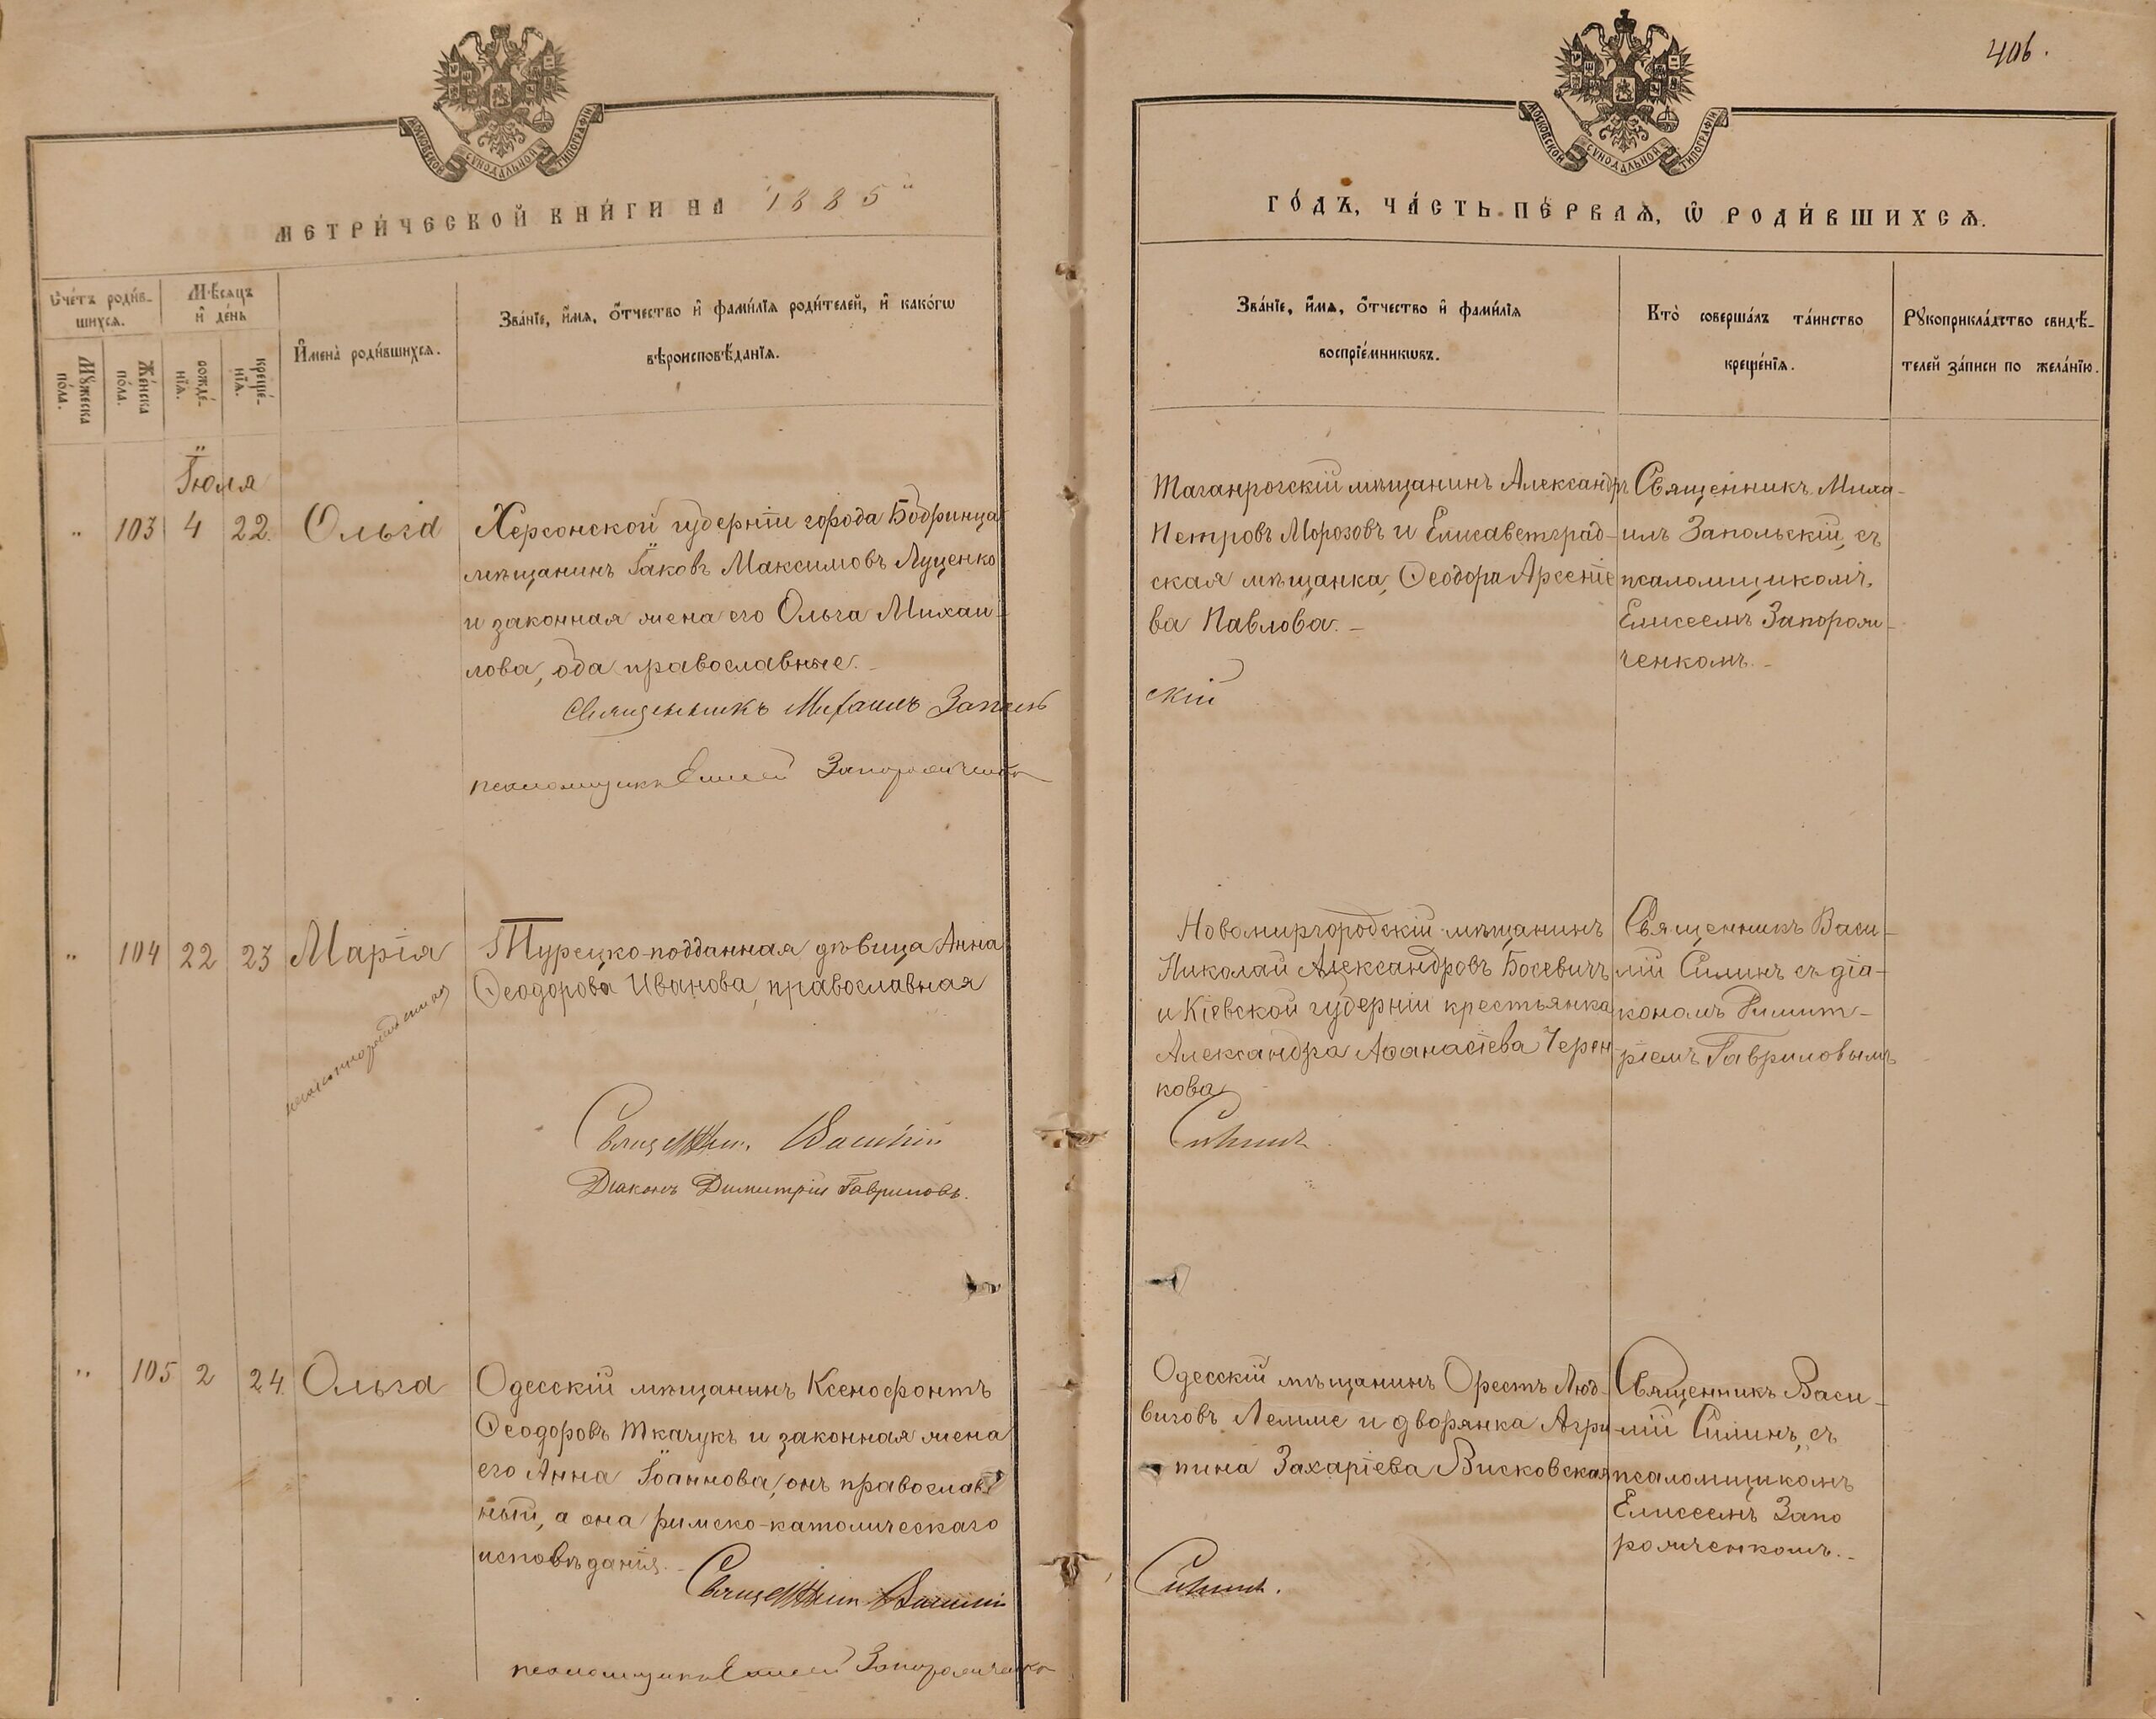 406.
МОСКОВСКОЙ СѴНОДАЛЬНОЙ ТИПОГРАФІИ
МОСКОВСКОЙ СѴНОДАЛЬНОЙ ТИПОГРАФІИ
МЕТРИ́ЧЕСКОЙ КНИ́ГИ НА "1885"
ГО́ДЪ, ЧА́СТЬ ПЕ́РВАѦ, Ѡ҆ РОДИ́ВШИХСѦ.
Сче́тъ роди́в-
шихсѧ.
Мꙋ́жеска
по́ла.
Же́нска
по́ла.
Мѣ́сѧцъ
и҆ де́нь
рожде́-
нїѧ.
креще́-
нїѧ.
И҆мена̀ роди́вшихсѧ.
Зва́нїе, и҆́мѧ, ѻ҆́тчество и҆ фами́лїѧ роди́телей, и҆ како́гѡ
вѣроисповѣ́данїѧ.
Зва́нїе, и҆́мѧ, ѻ҆́тчество и҆ фами́лїѧ
воспрїе́мникѡвъ.
Кто̀ соверша́лъ та́инство
креще́нїѧ.
Рꙋкоприкла́дство свидѣ́-
телей за́писи по жела́нїю.
Іюля
" 103 4 22. Ольга
Херсонской губерніи города Бобринца
мѣщанинъ Іаковъ Максимовъ Луценко
и законная жена его Ольга Михаи-
лова, оба православные.-
Священникъ Михаилъ Заполь
скій
псаломщикъ Елисей Запорожченко
Таганрогскій мѣщанинъ Александръ
Петровъ Морозовъ и Елисаветград-
ская мѣщанка, Ѳеодора Арсеніе
ва Павлова.-
Священникъ Миха-
илъ Запольскій, съ
псаломщикомъ,
Елисеемъ Запорож-
ченкомъ.-
" 104 22 23 Марія
незаконнорожденная
Турецко-подданная дѣвица Анна
Ѳеодорова Иванова, православная
Священник. Василій
Силинъ.
Діаконъ Димитрій Гавриловъ.
Новомиргородскій мѣщанинъ
Николай Александровъ Босевичъ
и Кіевской губерніи крестьянка
Александра Аѳанасіева Черен
кова
Священникъ Васи-
лій Силинъ съ діа-
кономъ Димит-
ріемъ Гавриловымъ
" 105 2 24. Ольга
Одесскій мѣщанинъ Ксенофонтъ
Ѳеодоровъ Ткачукъ и законная жена
его Анна Іоаннова, онъ православ
ный, а она римско-католическаго
исповѣданія.-
Священник Василій
Силинъ.
псаломщикъ Елисей Запорожченко
Одесскій мѣщанинъ Орестъ Люд-
виговъ Лемме и дворянка Агри
пина Захаріева Висковская
Священникъ Васи-
лій Силинъ, съ
псаломщикомъ
Елисеемъ Запо
рожченкомъ.-